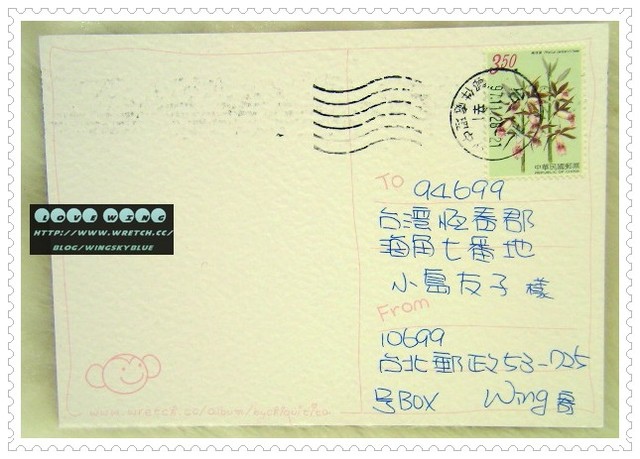 3.50
97.11.28-21
中華民國郵票
REPUBLIC OF CHINA
To 94699
台湾恆春郡
海角七番地
小島友子 樣
From
10699
台北郵政53-725
号BOX Wing 寄
LOVE WING
HTTP://WWW.WRETCH.CC/
BLOG/WINGSKYBLUE